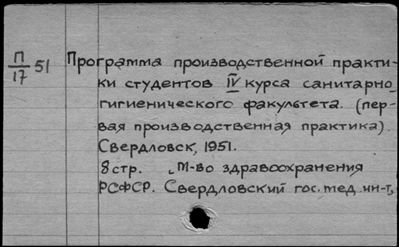 П/17 51 Программа производственной практи-
ки студентов IV курса санитарно-
гигиенического факультета. (пер-
вая производственная практика).
Свердловск, 1951.
8 стр. М-во здравоохранения
РСФСР. Свердловский гос. мед. ин-т,